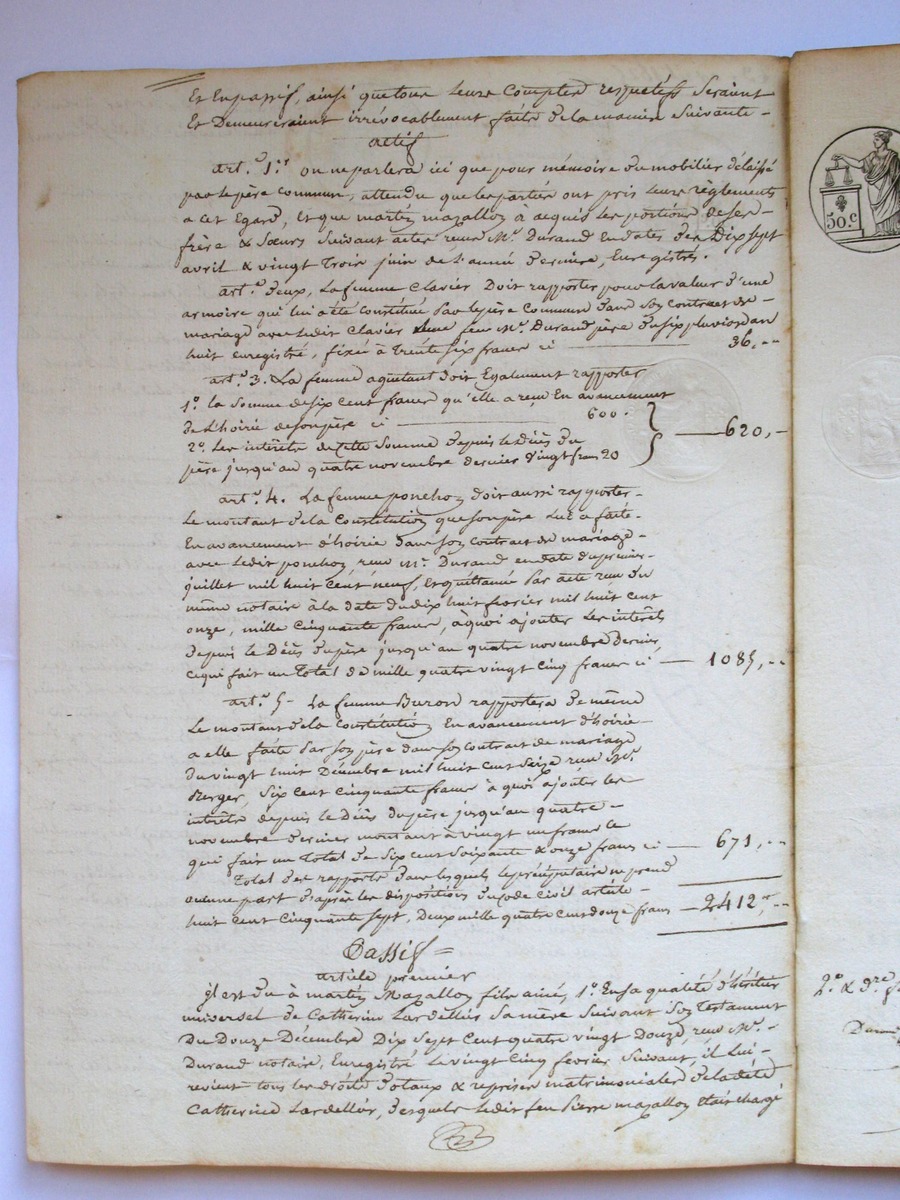 Et En passif, ainsi que tous leurs Comptes respectifs seraient
Et Demeureraient irrévocablement faits de la maniere suivante -
actif
art.e 1.er on ne parlera ici que pour mémoire du mobilier délaissé
par le père commun, attendu que les parties ont pris leurs règlements
a cet Egard, Et que martin mazalloz à acquis les portions de ses -
frère & sœurs suivant actes reçus Me. Durand En dates des Dix sept
avril & vingt Trois juin de l'année dernière, Enregistrés.
art.e deux, La femme Clavier Doit rapporter pour la valeur d'une
armoire qui lui a été Constituée Par le père Commun dans son contract de -
mariage avec ledit Clavier feu Me. Durand père du six pluviose an
huit enregistré, fixée à Trente six francs ci 36, --
art.e 3. La femme doit Egalement rapporter
1.o la Somme de six Cent francs qu'elle a reçu En avancement
de l'hoirie de son père ci 600.
2.o Les intérêts de Cette Somme depuis le décès du
père jusqu'au quatre novembre dernier vingt francs 20
620, -
art.e 4. La femme ponchoz doit aussi rapporter -
Le montant de la Constitution que son père Lui a faite -
En avancement d'hoirie dans son contract de mariage -
avec ledit ponchoz, reçu Me. Durand en date du premier -
juillet mil huit cent neuf, Et quittancé Par acte reçu du
même notaire à la date du dix huit fevrier mil huit cent
onze, mille cinquante francs, à quoi ajouter les intérêts
depuis le Décès du père jusqu'au quatre novembre dernier
ce qui fait un Total de mille quatre vingt Cinq francs ci — 1085, --
art.e 5 - La femme Buron rapportera de même
Le montant de la Constitution En avancement d'hoirie -
a elle faite Par son père dans son contract de mariage
du vingt huit Décembre mil huit Cent Seize reçu Me.
Berger, Six cent cinquante francs à quoi ajouter les
intérêts depuis le Décès du père jusqu'au quatre -
novembre dernier montant à vingt un francs Ce
qui fait un Total de Six cent Soixante & onze francs ci — 671, --
Total des rapports dans lesquels le préciputaire ne prend
aucune part d'après les dispositions du code Civil article -
huit Cent Cinquante sept, Deux mille quatre Cent douze francs — 2412, --
Passif =
article premier
Il est du à martin Mazalloz fils ainé, 1.o En sa qualité d'héritier
universel de Catherine Lardellier sa mère suivant Son Testament
Du Douze Décembre Dix Sept Cent quatre vingt Douze, reçu Me. -
Durand notaire, Enregistré Le vingt Cinq fevrier Suivant, il Lui -
revient tous les droits Dotaux & reprises matrimoniales de ladite
Catherine Lardellier, desquels ledit feu Pierre mazalloz Etait chargé
50.c
2.o